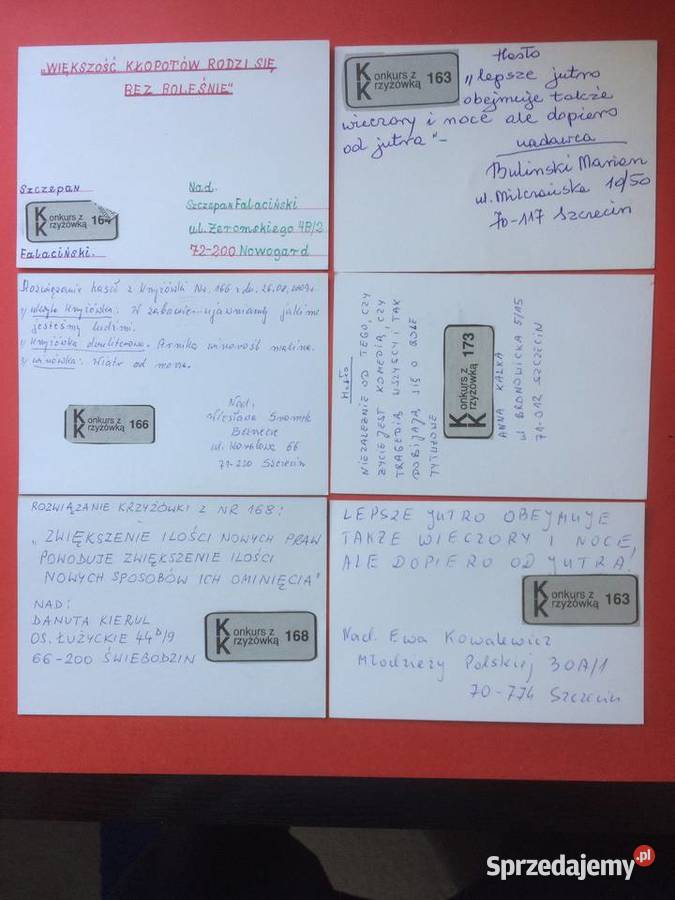 „WIĘKSZOŚĆ KŁOPOTÓW RODZI SIĘ
BEZ BOLEŚNIE"
Szczepan
Konkurs z
Krzyżówką 164
Falaciński.
Nad.
Szczepan Falaciński
ul. Żeromskiego 4B/2
72-200 Nowogard
Hasło
Konkurs z
Krzyżówką 163
„lepsze jutro
obejmuje także
wieczory i noce ale dopiero
od jutra" -
nadawca
Buliński Marian
ul. 10/50
70-117 Szczecin
Rozwiązanie haseł z krzyżówki Nr. 166 z dn.
1) krzyżówka: W zabawie ujawniamy jakimi
jesteśmy ludźmi.
2) krzyżówka dwuliterowa. Arnika winorośl malina.
3) Wiatr od morza.
Konkurs z
Krzyżówką 166
Nad:
Wiesława
ul. 66
Szczecin
Hasło
NIEZALEŻNIE OD TEGO, CZY
ŻYCIE JEST KOMEDIĄ, CZY
TRAGEDIĄ WSZYSCY I TAK
DOBIJAJĄ SIĘ O ROLE
TYTUŁOWE
Konkurs z
Krzyżówką 173
ANNA KALKA
UL BRONOWICKA 5/15
71-012 SZCZECIN
ROZWIĄZANIE KRZYŻÓWKI Z NR 168:
„ZWIĘKSZENIE ILOŚCI NOWYCH PRAW
POWODUJE ZWIĘKSZENIE ILOŚCI
NOWYCH SPOSOBÓW ICH OMINIĘCIA"
NAD:
DANUTA KIERUL
OS. ŁUŻYCKIE 44D/9
66-200 ŚWIEBODZIN
Konkurs z
Krzyżówką 168
LEPSZE JUTRO OBEJMUJE
TAKŻE WIECZORY I NOCE,
ALE DOPIERO OD JUTRA!
Konkurs z
Krzyżówką 163
Nad. Ewa Kowalewicz
Młodzieży Polskiej 30A/1
70-774 Szczecin
Sprzedajemy.pl